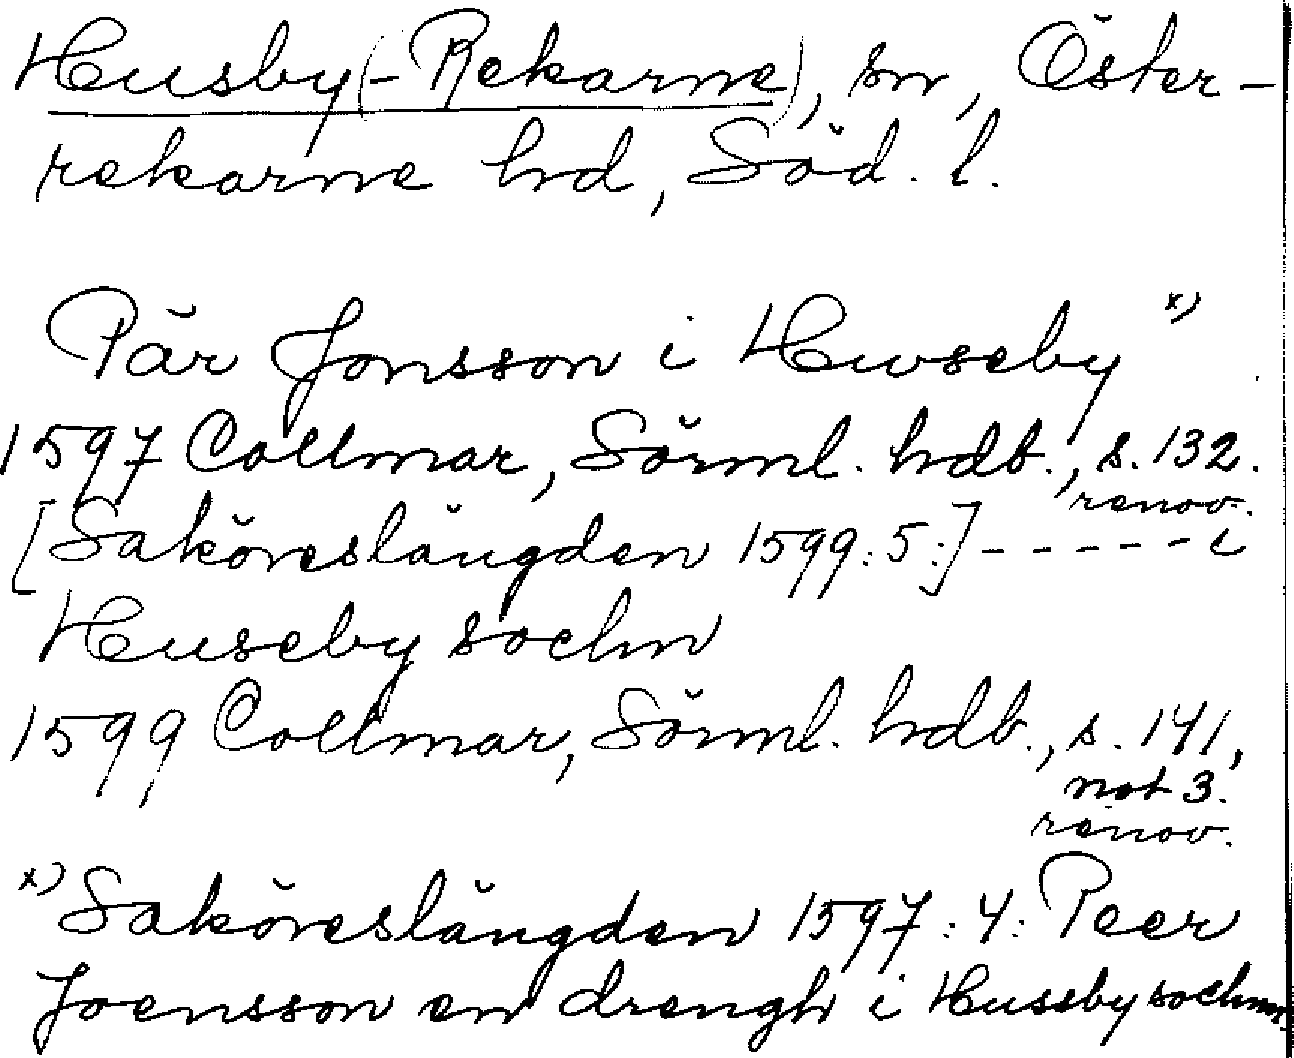 Husby(-Rekarne), sn, Öster-
rekarne hd, Söd. l.
Pär Jonsson i Hwseby x)
1597 Collmar, Sörml. hdb., s. 132.
renov.
[Saköreslängden 1599:5:] - - - - - i
Huseby sochn
1599 Collmar, Sörml. hdb., s. 141,
not 3.
renov.
x) Saköreslängden 1597:4: Peer
Joensson en drengh i Huseby sochnn.